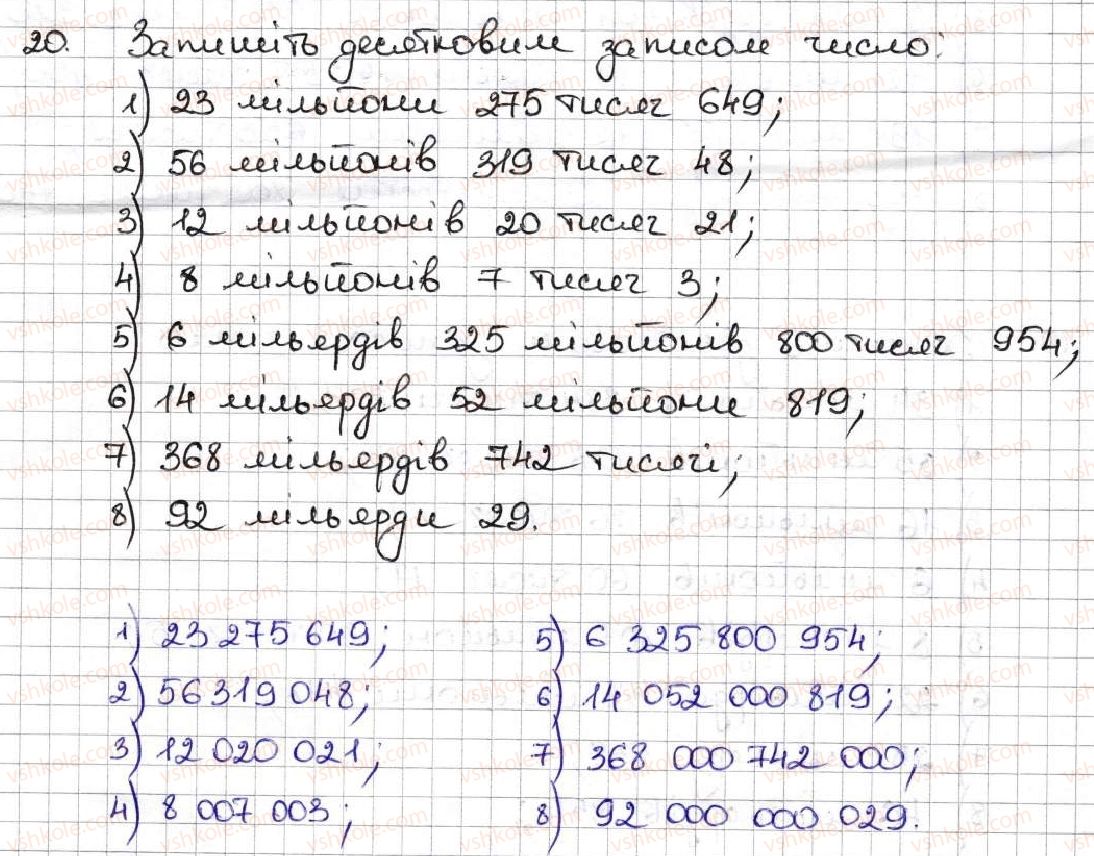 20. Запишіть десятковим записом число:
1) 23 мільйони 275 тисяч 649;
2) 56 мільйонів 319 тисяч 48;
3) 12 мільйонів 20 тисяч 21;
4) 8 мільйонів 7 тисяч 3;
5) 6 мільярдів 325 мільйонів 800 тисяч 954;
6) 14 мільярдів 52 мільйони 819;
7) 368 мільярдів 742 тисячі;
8) 92 мільярди 29.
1) 23 275 649;
2) 56 319 048;
3) 12 020 021;
4) 8 007 003;
5) 6 325 800 954;
6) 14 052 000 819;
7) 368 000 742 000;
8) 92 000 000 029.
vshkole.com